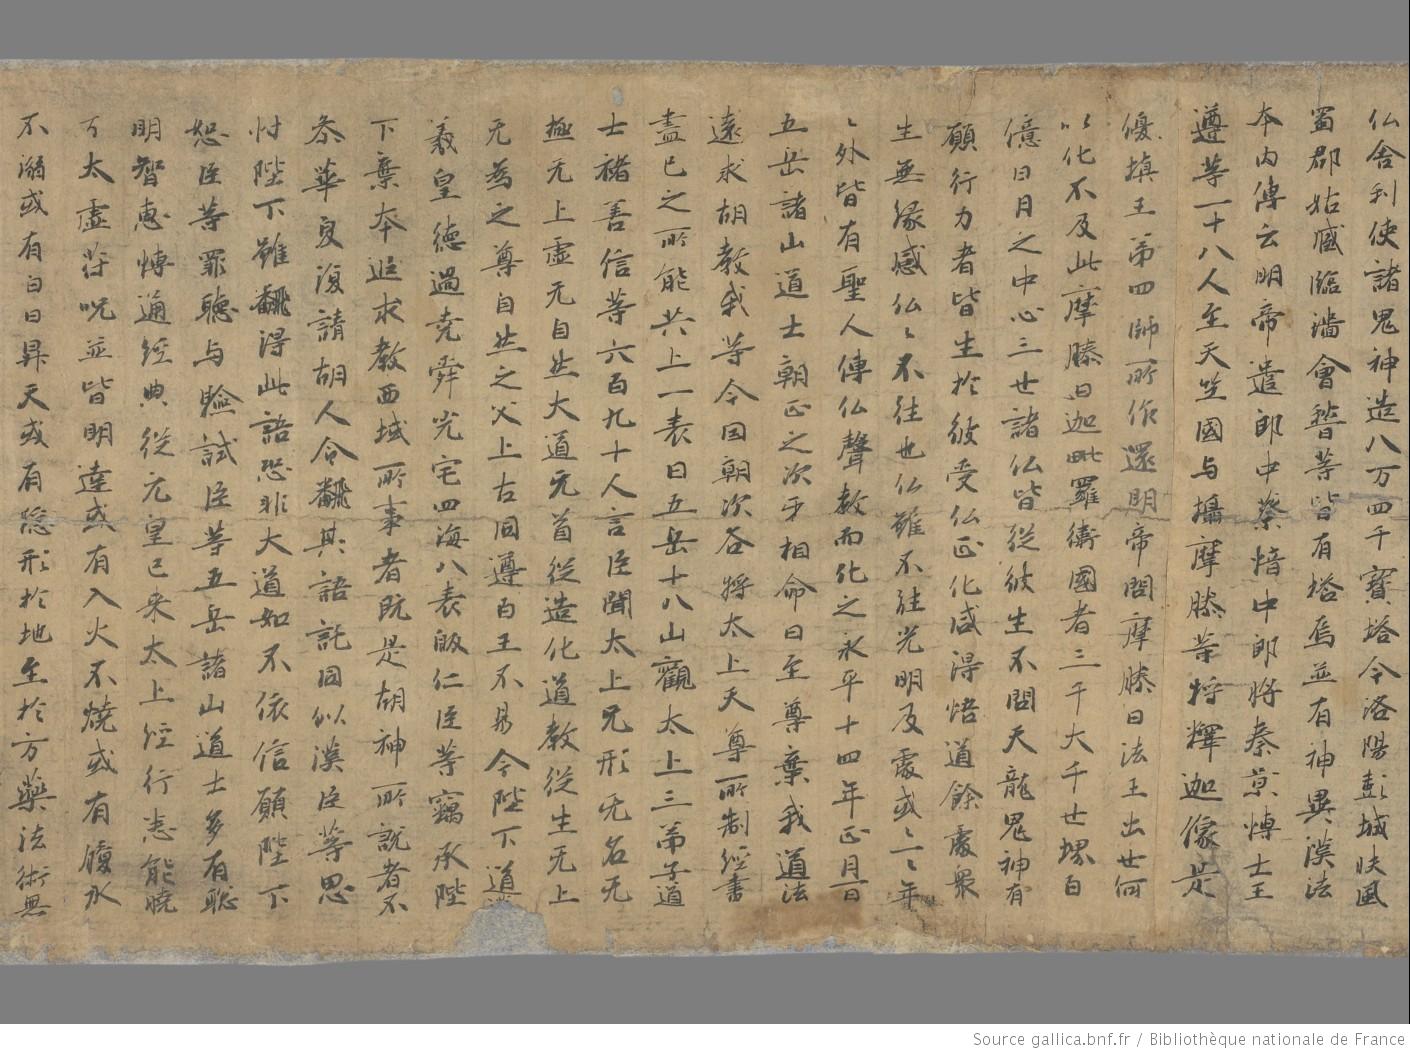 仏舍利使諸鬼神造八万四千寳塔令洛陽彭城扶風
蜀郡姑臧臨淄會等皆有塔焉並有神異漢法
本内傳云明帝遣郎中蔡愔中郎將秦景博士王
遵等一十八人至天竺國与攝摩騰等將釋迦像是
優填王第四師所作還明帝問摩騰曰法王出世何
以化不及此摩騰曰迦毗羅衛國者三千大千世堺百
億日月之中心三世諸仏皆從彼生不問天龍鬼神有
願行力者皆生於彼受仏正化咸得悟道餘處衆
生無緣感仏〻不往也仏雖不往光明及處或〻年
〻外皆有聖人傳仏聲教而化之永平十四年正月一日
五岳諸山道士朝正之次乎相命曰至尊棄我道法
遠求胡教我等今因朝次各將太上天尊所制經書
盡己之所能共上一表曰五岳十八山觀太上三苐子道
士褚善信等六百九十人言臣聞太上无形无名无
極无上虛无自然大道元首從造化道教從生无上
无為之尊自然之父上古同遵百王不易令陛下道
羲皇德過堯舜光宅四海八表皈仁臣等竊承陛
下棄本追求教西域所事者既是胡神所說者不
叅華夏復請胡人令飜其語託同似漢臣等思
忖陛下雖飜得此語恐非大道如不依信願陛下
恕臣等罪聽与驗試臣等五岳諸山道士多有聡
明智惠博通經典從元皇已来太上經行悉能曉
了太虛苻呪並皆明達或有入火不燒或有履水
不溺或有白日昇天或有隱形於地至於方藥法術無